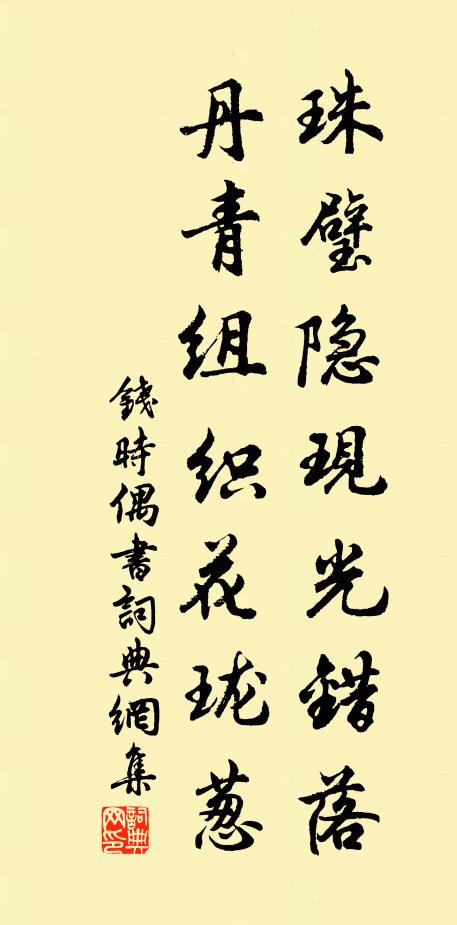 珠璧隐現光錯落
丹青组织花珑葱
錢時偶書詞典網集
詞典網印